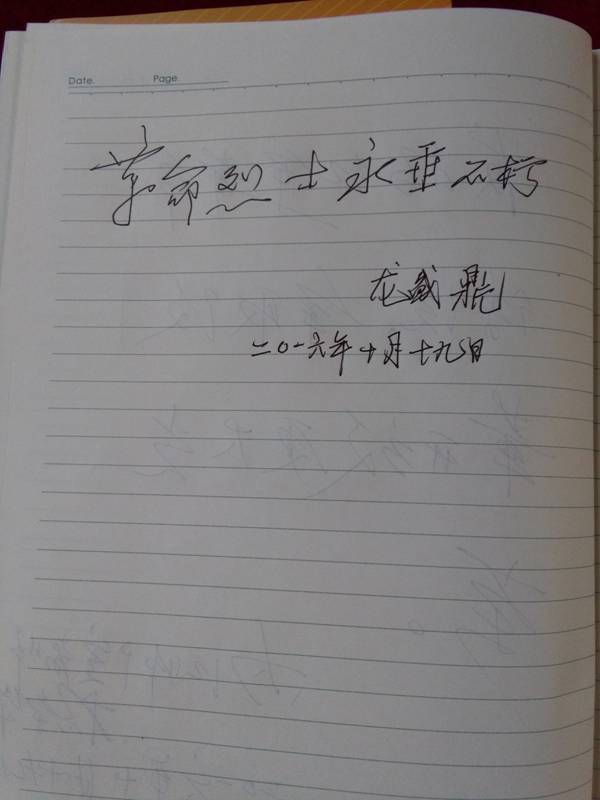 Date. Page
革命烈士永垂不朽
龙盛鼎
二〇一六年十月十九日